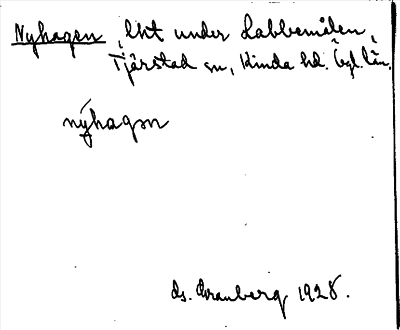 Nyhagen, lht under Labbemålen,
Tjärstad sn, Kinda hd. Ögl. län.
nýhagən
ds. Granberg 1928.